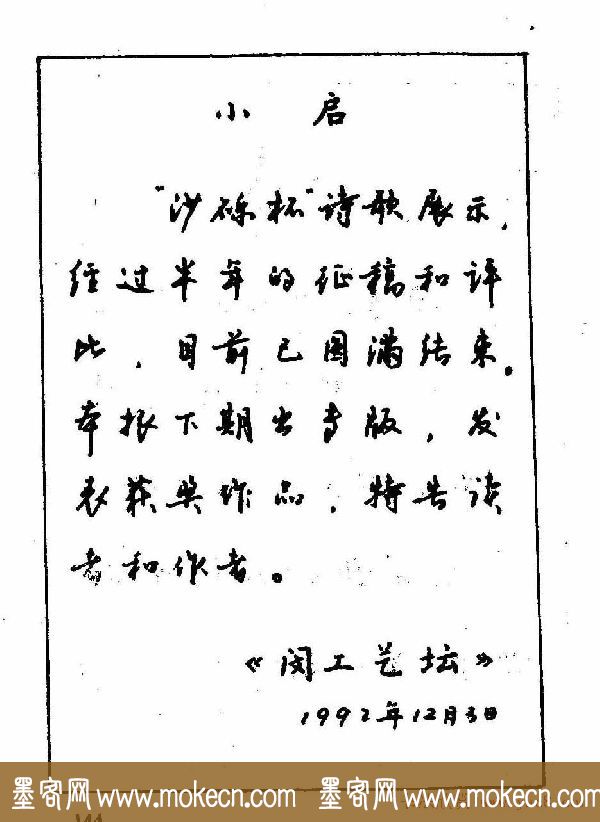 小 启
“沙砾杯”诗歌展示，
经过半年的征稿和评
比，目前已圆满结束。
本报下期出专版，发
表获奖作品，特告读
者和作者。
《闵工艺坛》
1992年12月3日
墨客网 www.mokecn.com 墨客网 www.mokecn.com